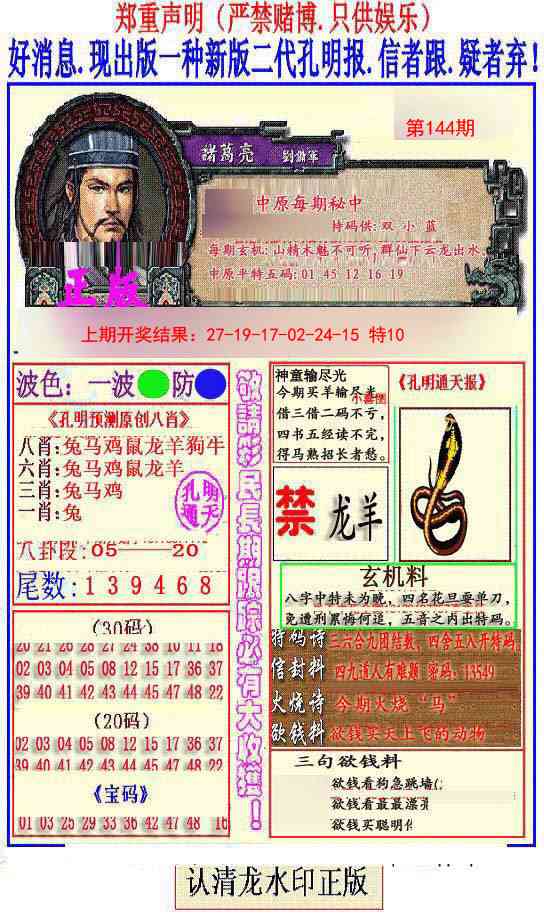 郑重声明（严禁赌博.只供娱乐）
好消息.现出版一种新版二代孔明报.信者跟.疑者弃！
第144期
諸葛亮
中原每期秘中
持码供:双 小 蓝
每期玄机:山精木魅不可听,群仙下云龙出水
中原平特五码:01 45 12 16 19
正版
上期开奖结果：27-19-17-02-24-15 特10
波色：一波 防
《孔明预测原创八肖》
八肖:兔马鸡鼠龙羊狗牛
六肖:兔马鸡鼠龙羊
三肖:兔马鸡
一肖:兔
孔明
通天
八卦段:05——20
尾数:139468
(30码)
20 21 26 28 27 24 38 10 11 18
02 03 04 05 08 12 15 17 36 37
39 40 41 42 43 44 45 47 48 22
(20码)
02 03 04 05 08 12 15 17 36 37
39 40 41 42 43 44 45 47 48 22
《宝码》
01 03 25 29 33 36 42 47 48 16
敬請彩民長期跟踪必有大收獲！
神童输尽光
今期买羊输尽光
借三借二码不亏,
四书五经读不完,
得马熟招长者愁。
《孔明通天报》
禁 龙羊
玄机料
八字中特未为晚，四名花旦耍单刀,
免遭刑累悔何迟，五音之内出特码。
特码诗 三六合九团结数，四舍五入开特码
信封料 四九道人有难题 密码：13549
火烧诗 今期火烧“马”
欲钱料 欲钱买天上飞的动物
三句欲钱料
欲钱看狗急跳墙(
欲钱看最最潇
欲钱买聪明
认清龙水印正版